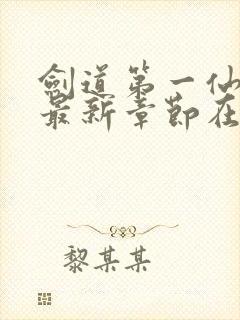 劍道第一仙
最新章節在
黎某某